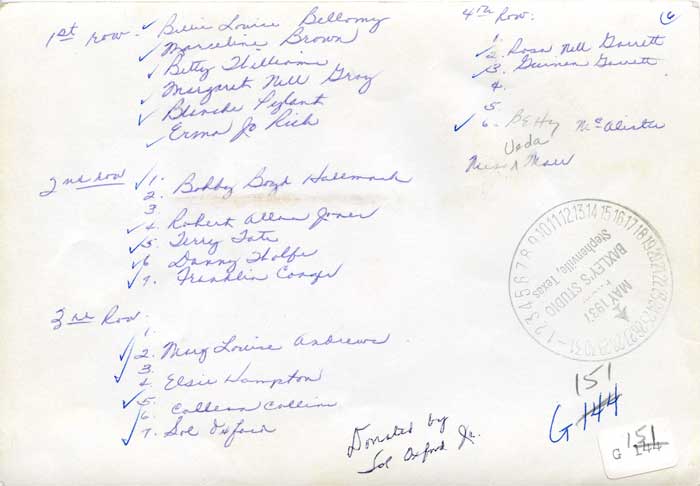 1st row - Billie Louise Bellomy
Marceline Brown
Betty Williams
Margaret Nell Gray
Blanche Pylant
Erma Jo Rich
2nd row 1. Bobby Boyd Hallmark
2.
3.
4. Robert Allen Jones
5. Terry Tate
6 Danny Wolfe
7. Franklin
3rd Row.
1.
2. Mary Louise Andrews
3.
4. Elsie Hampton
5.
6. Colleen Collins
7. Sol Oxford
4th Row:
1.
2. Rosa Nell Garrett
3. Garrett
4.
5.
6. Betty McAlister
Veda
Miss ^ Moore
6
BAXLEY'S STUDIO
Stephenville, Texas
MAY 1937
1 2 3 4 5 6 7 8 9 10 11 12 13 14 15 16 17 18 19 20 21 22 23 24 25 26 27 28 29 30 31
Donated by
Sol Oxford Jr.
151
G 144
151
G 144